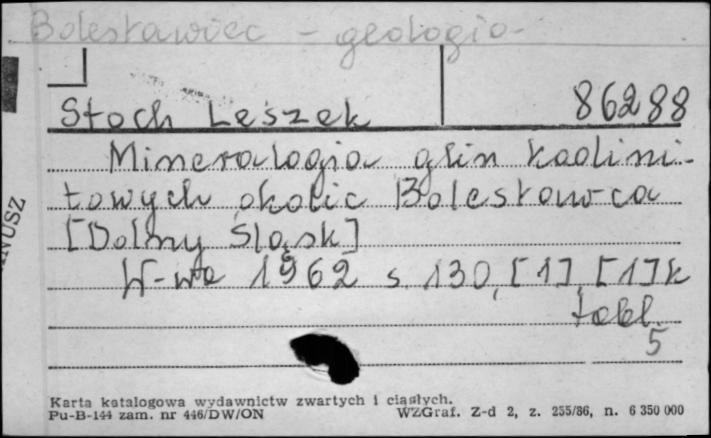 Bolesławiec - geologia
Stoch Leszek 86288
Mineralogia glin kaolini-
towych okolic Bolesławca
[Dolny Śląsk]
W-wa 1962 s. 130, [1], [1] k
tabl.
5
Karta katalogowa wydawnictw zwartych i ciągłych.
Pu-B-144 zam. nr 446/DW/ON WZGraf. Z-d 2, z. 255/86, n. 6 350 000